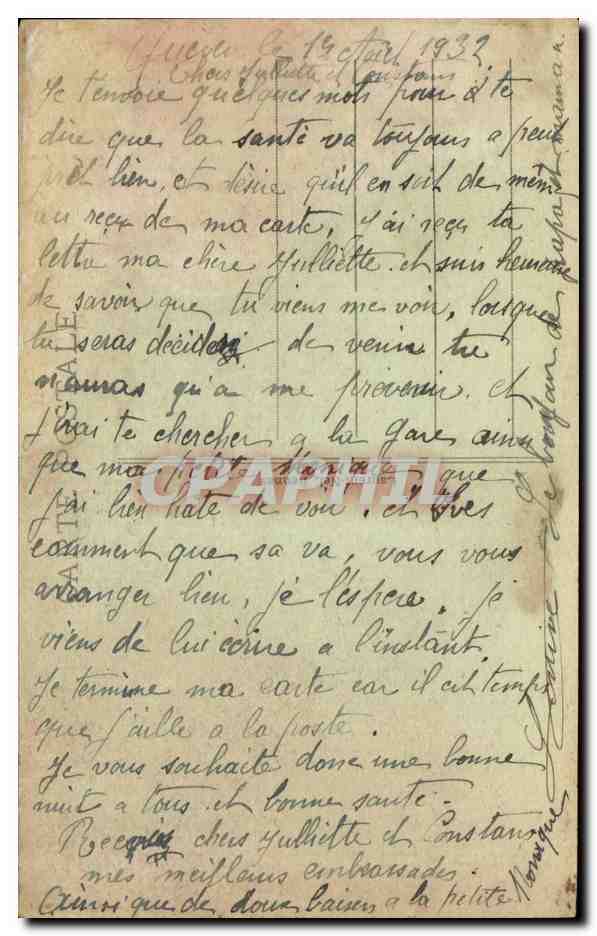 le 13 Août 1932
Chers Julliette et Constans
Je t'envoie quelques mots pour te
dire que la santé va toujours a peut
prêt bien, et désire qu'il en soit de même
au reçu de ma carte, j'ai reçu ta
lettre ma chère Julliette. et suis heureuse
de savoir que tu viens me voir, lorsque
tu seras décider de venir tu
n'auras qu'a me prévenir. et
j'irai te chercher a la gare ainsi
que ma petite Monique que
j'ai bien hâte de voir. et Yves
comment que sa va, vous vous
arranger bien, je l'éspère. je
viens de lui écrire a l'instant.
Je termine ma carte car il est temps
que j'aille a la poste.
Je vous souhaite donc une bonne
nuit a tous. et bonne santé.
Recevez chers Julliette et Constans
mes meilleurs embrassades.
Ainsi que de doux baisers a la petite
Monique
Le bonjour de papa et maman.
CARTE POSTALE
CPAPHIL